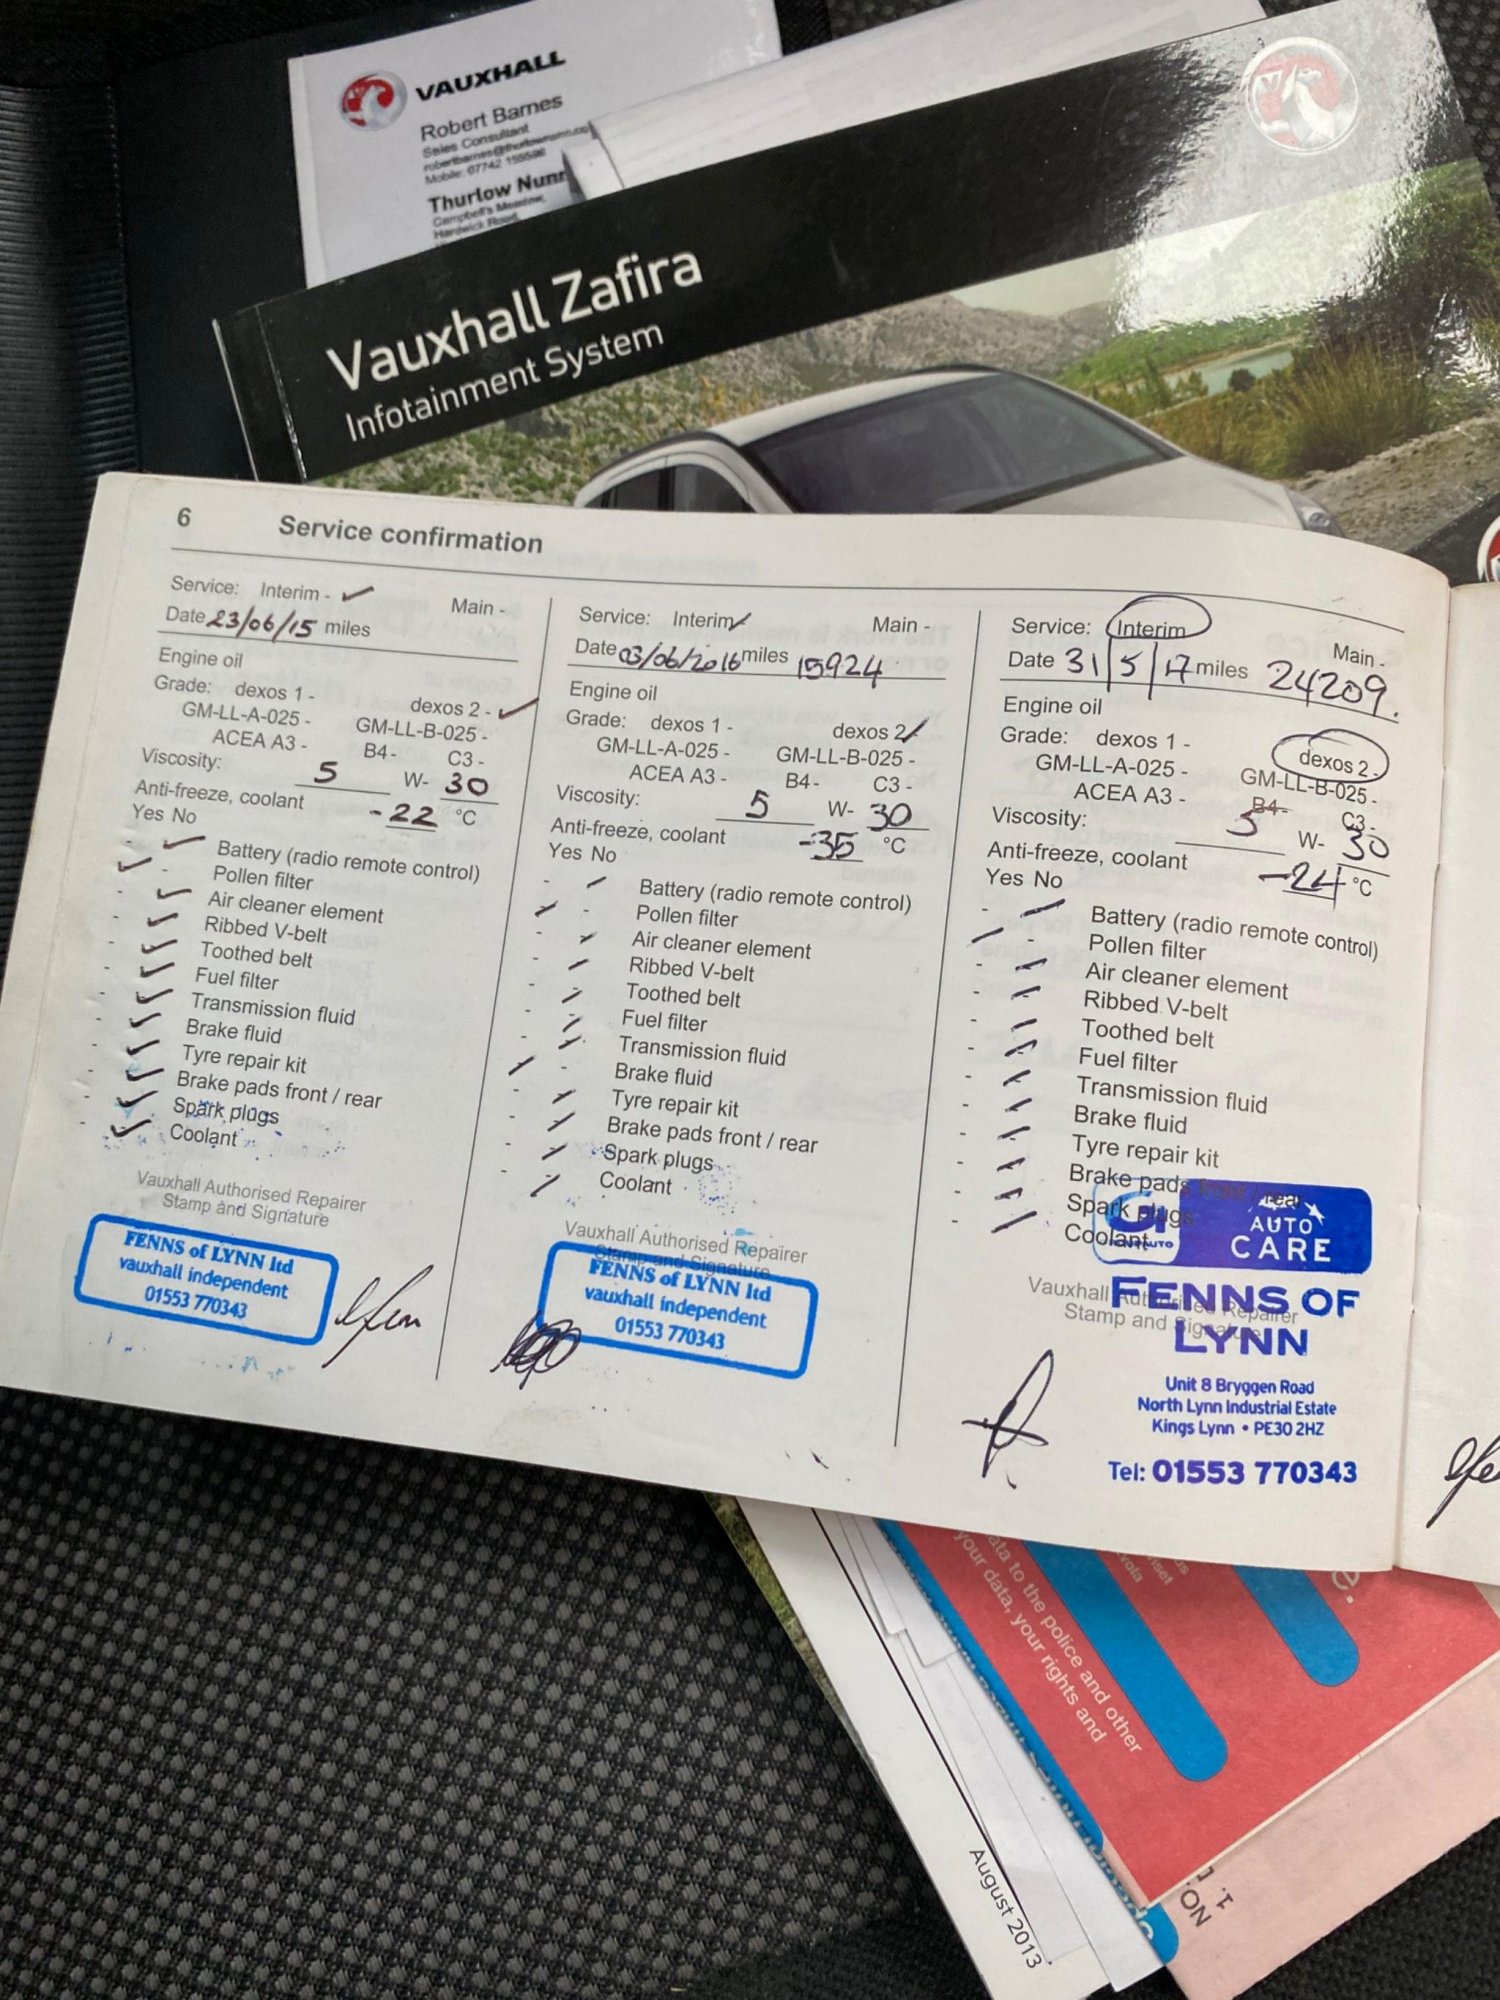 VAUXHALL
Robert Barnes
Sales Consultant
Mobile: 07742
Thurlow Nunn
Campbell's Meadow,
Hardwick Road,
Vauxhall Zafira
Infotainment System
6 Service confirmation
Service: Interim - Main -
Date 23/06/15 miles
Engine oil
Grade: dexos 1 - dexos 2 -
GM-LL-A-025 - GM-LL-B-025 -
ACEA A3 - B4 - C3 -
Viscosity: 5 W- 30
Anti-freeze, coolant -22 °C
Yes No
Battery (radio remote control)
Pollen filter
Air cleaner element
Ribbed V-belt
Toothed belt
Fuel filter
Transmission fluid
Brake fluid
Tyre repair kit
Brake pads front / rear
Spark plugs
Coolant
Vauxhall Authorised Repairer
Stamp and Signature
FENNS of LYNN ltd
vauxhall independent
01553 770343
Service: Interim Main -
Date 03/06/2016 miles 15924
Engine oil
Grade: dexos 1 - dexos 2
GM-LL-A-025 - GM-LL-B-025 -
ACEA A3 - B4 - C3 -
Viscosity: 5 W- 30
Anti-freeze, coolant -35 °C
Yes No
Battery (radio remote control)
Pollen filter
Air cleaner element
Ribbed V-belt
Toothed belt
Fuel filter
Transmission fluid
Brake fluid
Tyre repair kit
Brake pads front / rear
Spark plugs
Coolant
Vauxhall Authorised Repairer
Stamp and Signature
FENNS of LYNN ltd
vauxhall independent
01553 770343
Service: Interim Main -
Date 31/5/17 miles 24209.
Engine oil
Grade: dexos 1 - dexos 2 -
GM-LL-A-025 - GM-LL-B-025 -
ACEA A3 - B4 - C3 -
Viscosity: 5 W- 30
Anti-freeze, coolant -24 °C
Yes No
Battery (radio remote control)
Pollen filter
Air cleaner element
Ribbed V-belt
Toothed belt
Fuel filter
Transmission fluid
Brake fluid
Tyre repair kit
Brake pads front / rear
Spark plugs
Coolant
AUTO
CARE
Vauxhall Authorised Repairer
Stamp and Signature
FENNS OF
LYNN
Unit 8 Bryggen Road
North Lynn Industrial Estate
Kings Lynn • PE30 2HZ
Tel: 01553 770343
ata to the police and other
your data, your rights and
August 2013